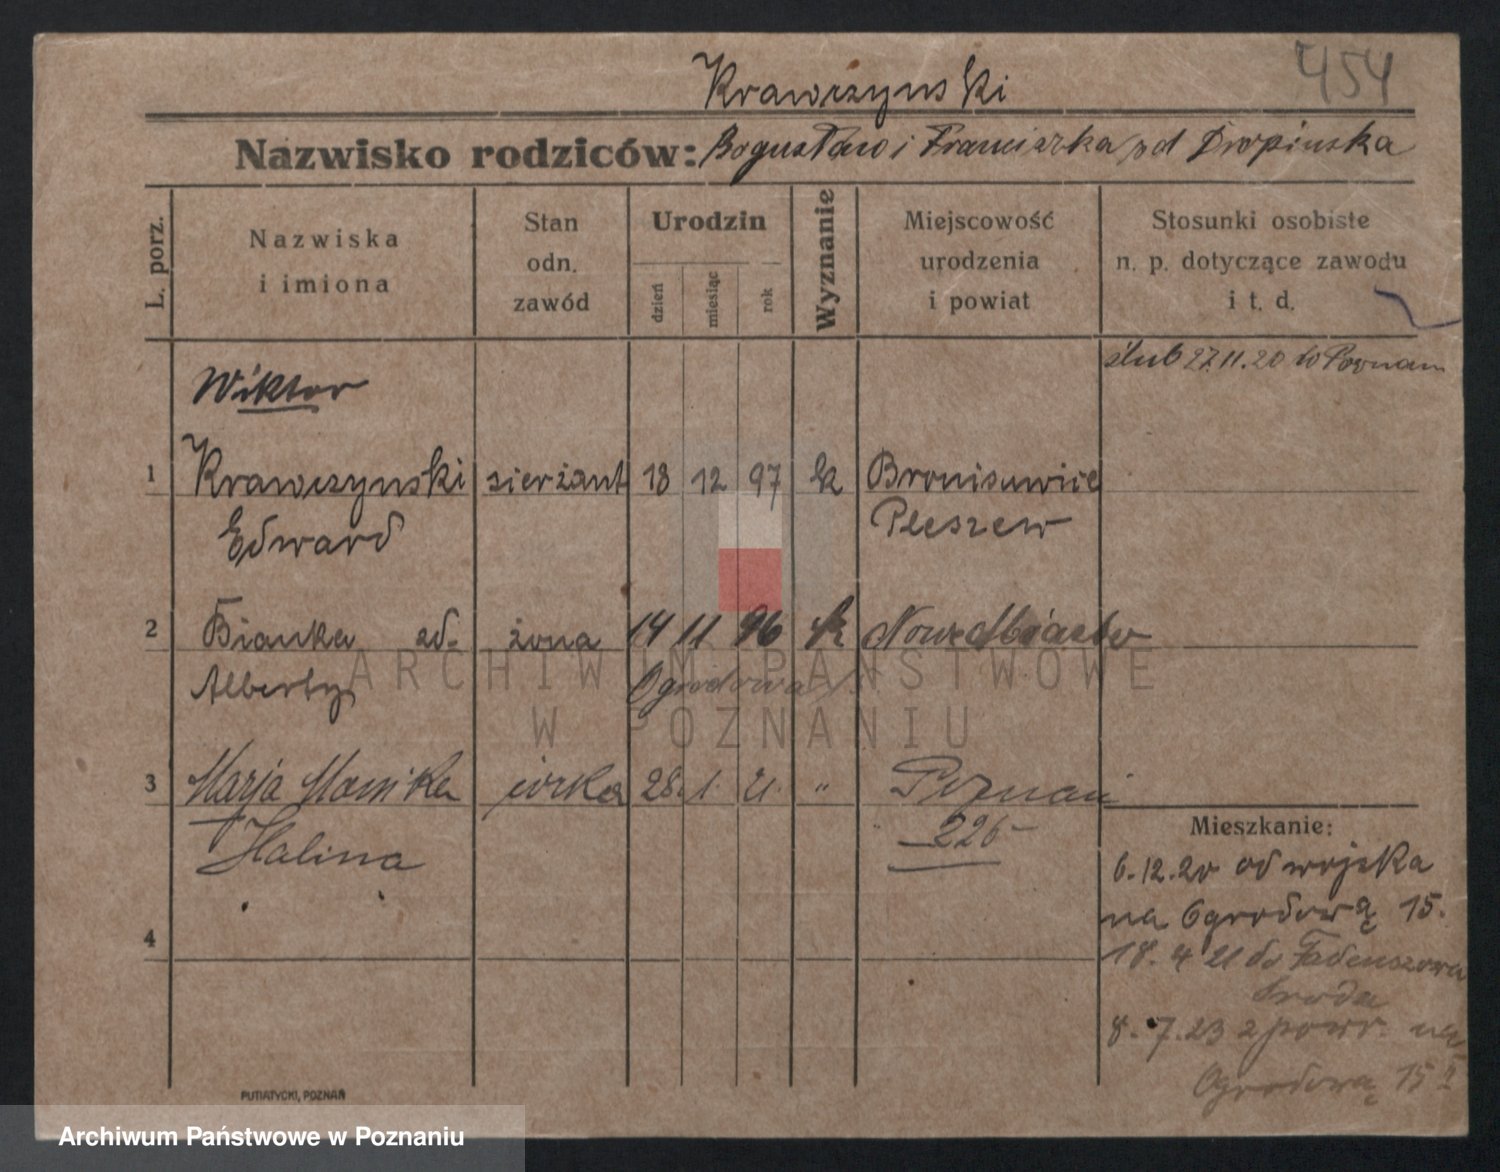 454
Krawczynski
Nazwisko rodziców: Bogusław i Franciszka pd Dropinska
L. porz.
Nazwiska
i imiona
Stan
odn.
zawód
Urodzin
dzień
miesiąc
rok
Wyznanie
Miejscowość
urodzenia
i powiat
Stosunki osobiste
n. p. dotyczące zawodu
i t. d.
ślub 27.11.20 w Poznan
Wiktor
1 Krawczynski sierżant 18 12 97 k
Edward Pleszew
2 Bianka zd. żona 14 11 96 k Nowe Miasto
Alberty Ogrodowa
3 Marja Monika córka 28. 1. 21. " Poznań
Halina 226
4
Mieszkanie:
6.12.20 od wojska
na Ogrodową 15.
18. 4 21 do Tadeuszowa
Sroda
8. 7. 23 z powr. na
Ogrodową 15 II
PUTIATYCKI, POZNAŃ
ARCHIWUM PAŃSTWOWE
W POZNANIU
Archiwum Państwowe w Poznaniu